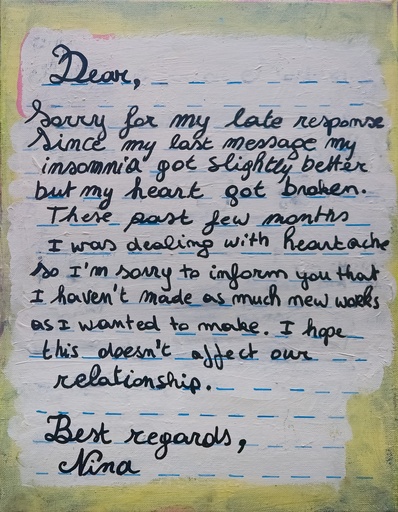 Dear,
Sorry for my late response
Since my last message my
insomnia got slightly better
but my heart got broken.
These past few months
I was dealing with heartache
so I'm sorry to inform you that
I haven't made as much new works
as I wanted to make. I hope
this doesn't affect our
relationship.
Best regards,
Nina